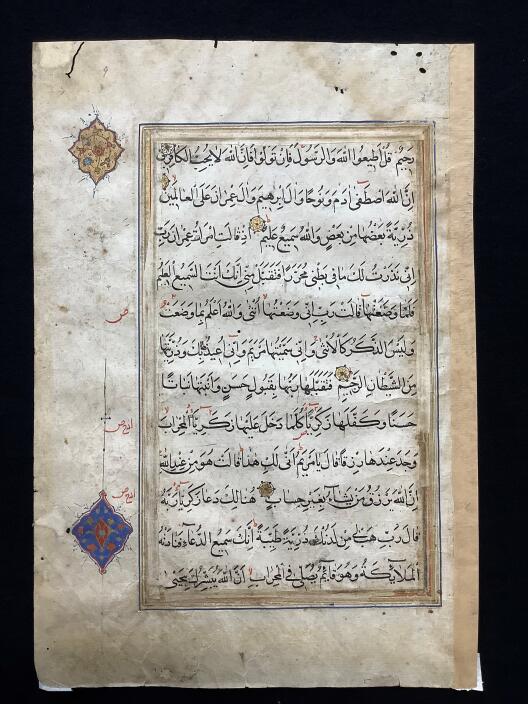 رحيم قل اطيعوا الله والرسول فان تولوا فان الله لا يحب الكافرين
ان الله اصطفى ادم ونوحا وال ابرهيم وال عمران على العالمين
ذرية بعضها من بعض والله سميع عليم اذ قالت امرات عمران رب
انى نذرت لك ما فى بطنى محررا فتقبل منى انك انت السميع العليم
فلما وضعتها قالت رب انى وضعتها انثى والله اعلم بما وضعت
وليس الذكر كالانثى وانى سميتها مريم وانى اعيذها بك وذريتها
من الشيطان الرجيم فتقبلها ربها بقبول حسن وانبتها نباتا
حسنا وكفلها زكريا كلما دخل عليها زكريا المحراب
وجد عندها رزقا قال يا مريم انى لك هذا قالت هو من عند الله
ان الله يرزق من يشاء بغير حساب هنالك دعا زكريا ربه
قال رب هب لى من لدنك ذرية طيبة انك سميع الدعاء فنادته
الملائكة وهو قائم يصلى فى المحراب ان الله يبشرك بيحيى